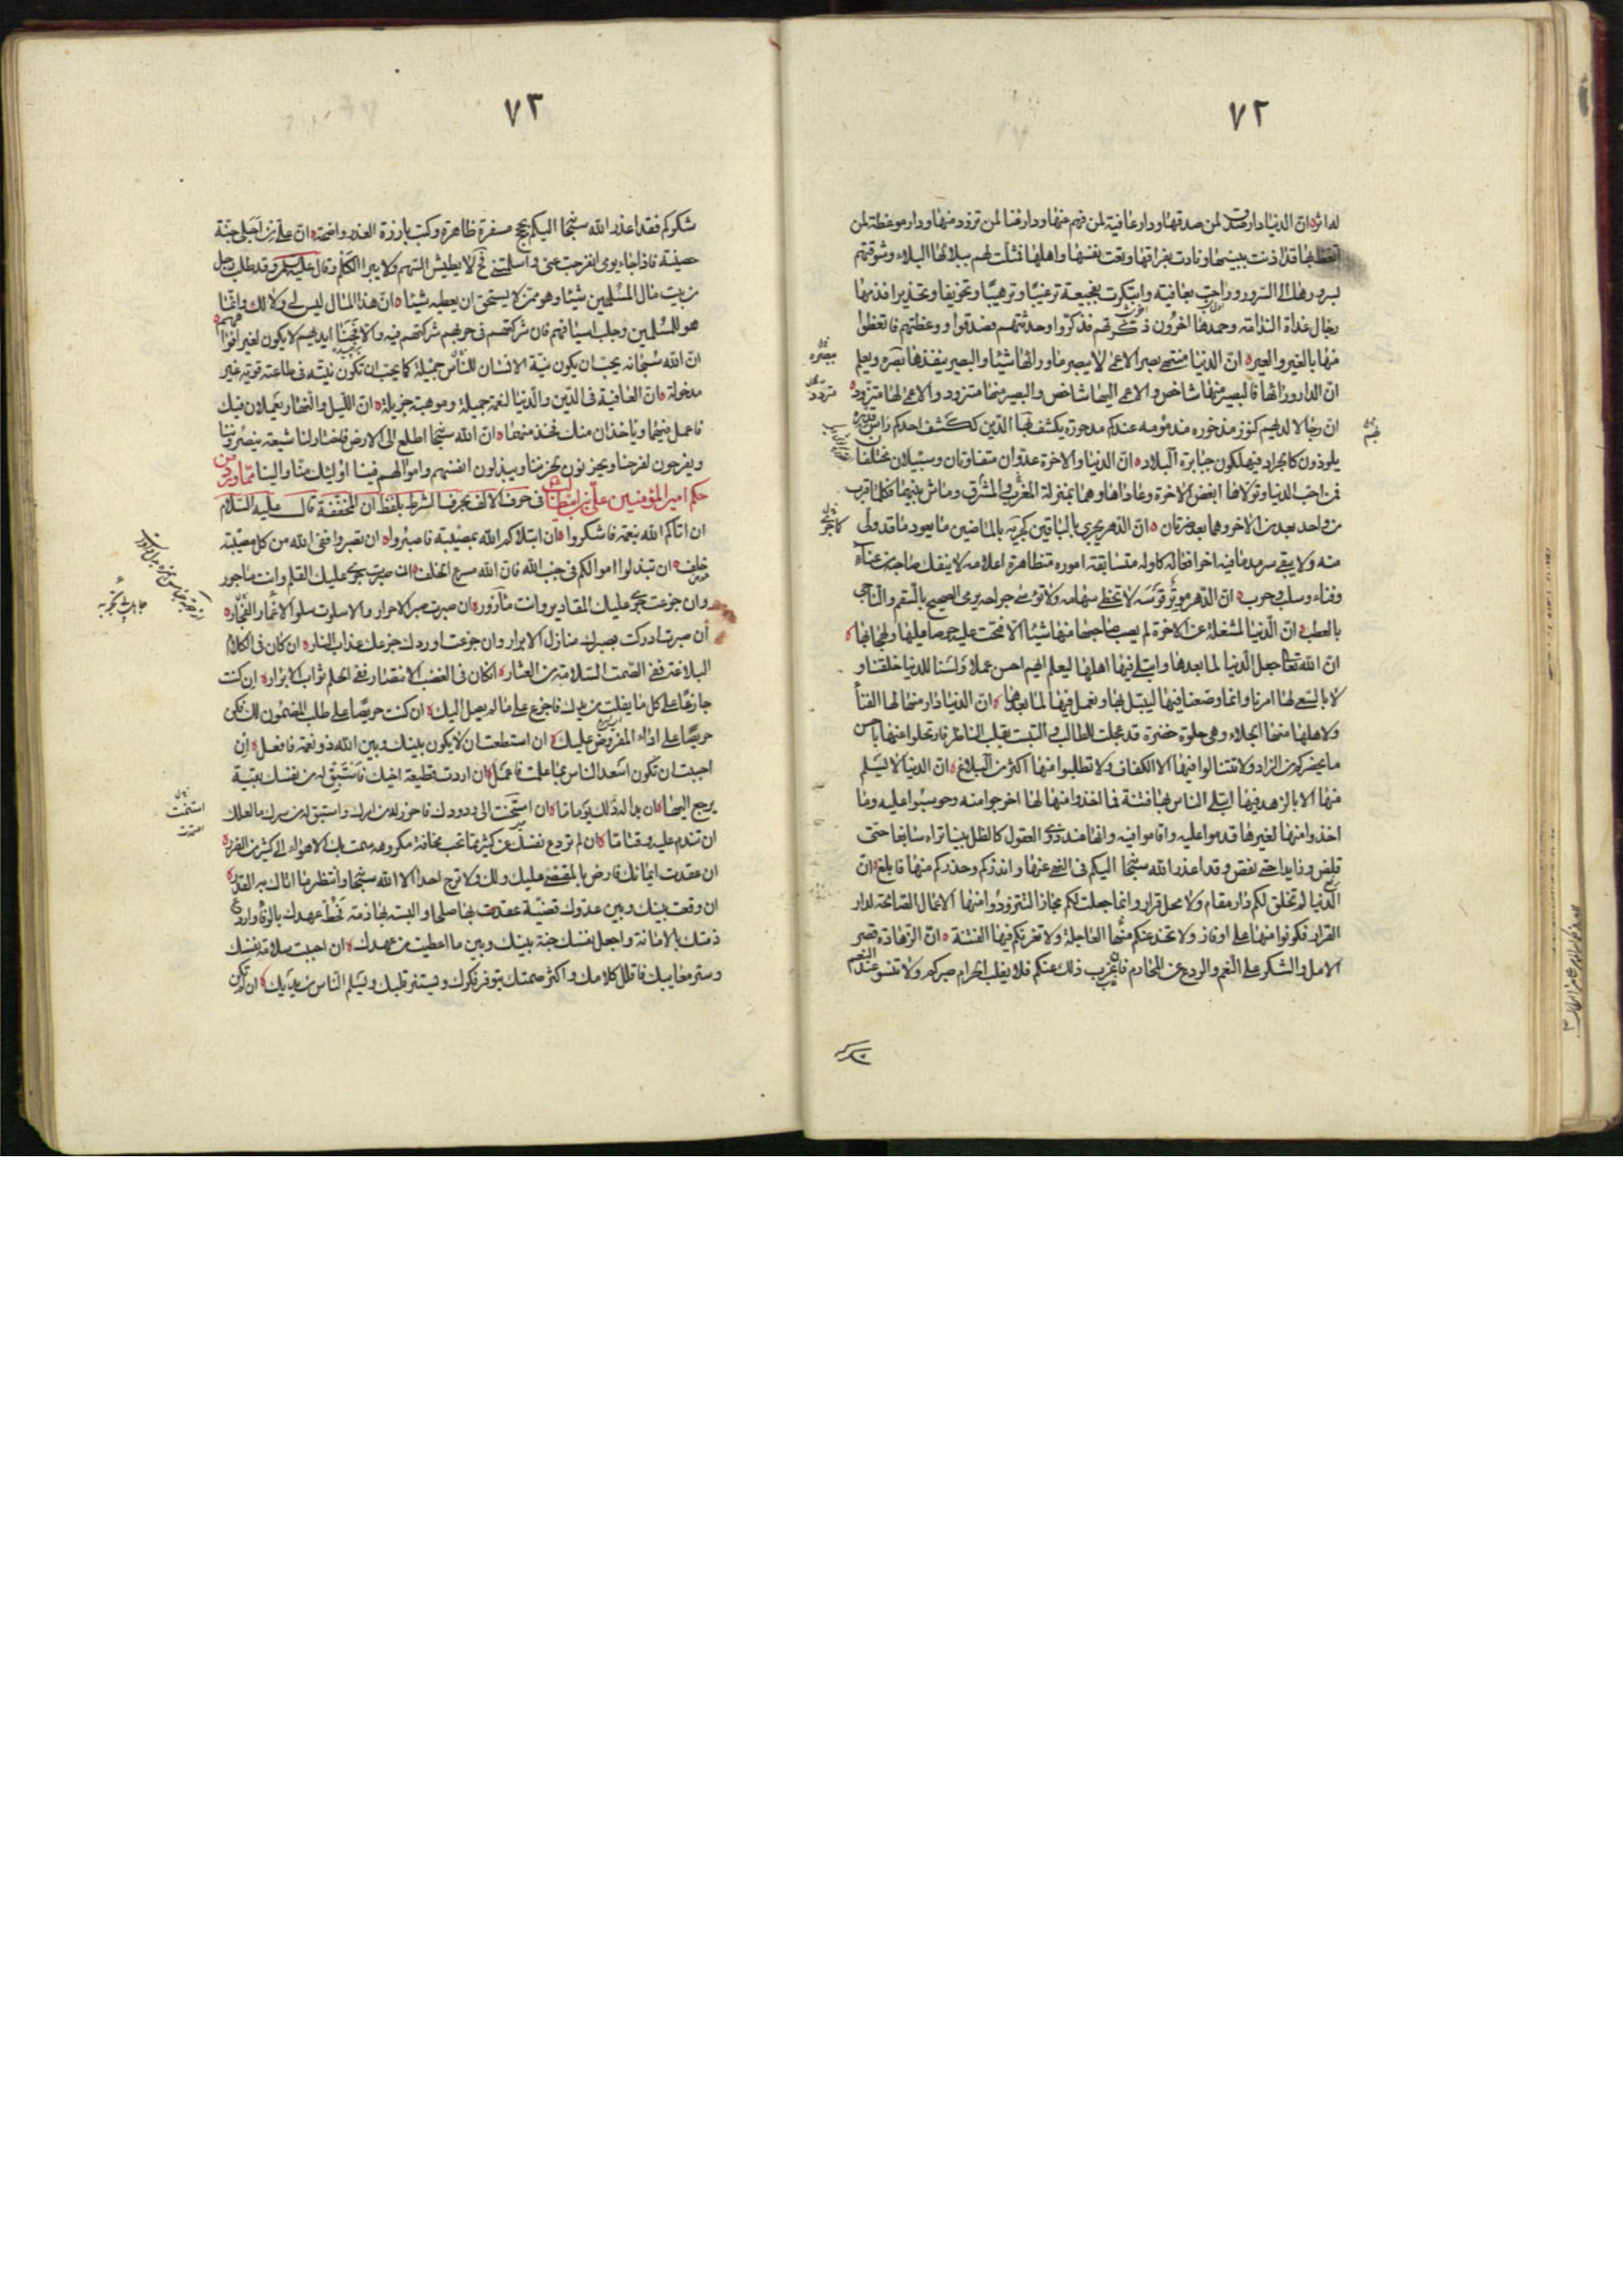 ٧٢
لدائه ان الدنيا دار صدق لمن صدقها ودار عافية لمن فهم عنها ودار غنا لمن تزود منها ودار موعظة لمن
اتعظ بها قد اذنت ببينها ونادت بفراقها ونعت نفسها واهلها فمثلت لهم ببلائها البلاء وشوقتهم
بسرورها الى السرور راحت بعافية وابتكرت بفجيعة ترغيبا وترهيبا وتخويفا وتحذيرا فذمها
رجال غداة الندامة وحمدها اخرون ذكرتهم فذكروا وحدثتهم فصدقوا ووعظتهم فاتعظوا
منها بالغير والعبر ان الدنيا منتهى بصر الاعمى لا يبصر مما ورائها شيئا والبصير ينفذها بصره ويعلم
ان الدار ورائها فالبصير منها شاخص والاعمى اليها شاخص والبصير منها متزود والاعمى لها متزود
يلوذون كالجراد فيهلكون جبابرة البلاد ان الدنيا والاخرة عدوان متفاوتان وسبيلان مختلفان
فمن احب الدنيا وتولاها ابغض الاخرة وعاداها وهما بمنزلة المغرب والمشرق وماش بينهما فكلما قرب
من واحد بعد من الاخر وهما بعد ضرتان ان الدهر يجري بالباقين كجريه بالماضين ما يعود ما قد ولى
منه ولا يبقى سرمد ما فيه اخر افعاله كاوله متسابقة اموره متظاهرة اعلامه لا ينفك صاحبه من عناء
وفناء وسلب وحرب ان الدهر موتر قوسه لا تخطى سهامه ولا توسى جراحه يرمى الصحيح بالسقم والناجى
بالعطب ان الدنيا لمشغلة عن الاخرة لم يصب صاحبها منها شيئا الا فتحت عليه حرصا عليها ولهجا بها
ان الله تعالى جعل الدنيا لما بعدها وابتلى فيها اهلها ليعلم ايهم احسن عملا ولسنا للدنيا خلقنا و
لا بالسعى لها امرنا وانما وضعنا فيها لنبتلى بها ونعمل فيها لما بعدها ان الدنيا دار منى لها الفنا
ولاهلها منها الجلاء وهى حلوة خضرة قد عجلت للطالب والتبست بقلب الناظر فارتحلوا عنها باحسن
ما يحضركم من الزاد ولا تسئلوا فيها الا الكفاف ولا تطلبوا منها اكثر من البلاغ ان الدنيا لا يسلم
منها الا بالزهد فيها ابتلى الناس بها فتنة فما اخذوا منها لها اخرجوا منه وحوسبوا عليه وما
اخذوا منها لغيرها قدموا عليه واقاموا فيه وانها عند ذوى العقول كالظل بينا تراه سابغا حتى
قلص وزايدا حتى نقص وقد اعذر الله سبحانه اليكم فى النهى عنها وانذركم وحذركم منها فابلغ ان
الدنيا لم تخلق لكم دار مقام ولا محل قرار وانما جعلت لكم مجازا لتتزودوا منها الاعمال الصالحة لدار
القرار فكونوا منها على اوفاز ولا تخدعنكم منها العاجلة ولا تغرنكم فيها الفتنة ان الزهادة قصر
الامل والشكر على النعم والورع عن المحارم فان عزب ذلك عنكم فلا يغلب الحرام صبركم ولا تنسوا عند النعم
٧٣
شكركم فقد اعذر الله سبحانه اليكم بحجج مسفرة ظاهرة وكتب بارزة العذر واضحة ان على من اجلى جنة
حصينة فاذا جاء يومى انفرجت عنى واسلمتنى فح لا يطيش السهم ولا يبرا الكلم وقال عليه السلم وقد طلب رجل
من بيت مال المسلمين شيئا وهو ممن لا يستحق ان يعطيه شيئا ان هذا المال ليس لى ولا لك وانما
هو للمسلمين وجلب اسيافهم فان شركتهم فى حربهم شركتهم فيه والا فجنا ايديهم لا يكون لغير افواههم
ان الله سبحانه يحب ان يكون نية الانسان للناس جميلة كما يحب ان تكون نيته فى طاعته قوية غير
مدخولة ان العافية فى الدين والدنيا لنعمة جميلة وموهبة جزيلة ان الليل والنهار يعملان فيك
فاعمل فيهما وياخذان منك فخذ منهما ان الله سبحانه اطلع الى الارض فاختار لنا شيعة ينصروننا
ويفرحون لفرحنا ويحزنون لحزننا ويبذلون انفسهم واموالهم فينا اولئك منا والينا مما ورد من
حكم امير المؤمنين على بن ابيطالب فى حرف الالف بحرف الشرط بلفظ ان المخففة قال عليه السلام
ان اتاكم الله بنعمة فاشكروا ان ابتلاكم الله بمصيبة فاصبروا ان تصبروا ففى الله من كل مصيبة
خلف ان تبذلوا اموالكم فى جنب الله فان الله مسرع الخلف ان صبرت جرى عليك القلم وانت ماجور
وان جزعت جرى عليك المقادير وانت مازور ان صبرت صبر الاحرار والا سلوت سلو الاغمار
ان صبرت ادركت بصبرك منازل الابرار وان جزعت اوردك جزعك عذاب النار ان كان فى الكلام
البلاغة ففى الصمت السلامة من العثار ان كان فى الغضب الانتصار ففى الحلم ثواب الابرار ان كنت
جازعا على كل ما يفلت من يديك فاجزع على ما لم يصل اليك ان كنت حريصا على طلب المضمون لك فكن
حريصا على اداء المفروض عليك ان استطعت ان لا يكون بينك وبين الله ذو نعمة فافعل ان
احببت ان تكون اسعد الناس بما علمت فاعمل ان اردت قطيعة اخيك فاستبق له من نفسك بقية
يرجع اليها ان بدا له ذلك يوما ما ان استنمت الى ودودك فاحرز له من امرك واستبق له من سرك ما لعلك
ان تندم عليه وقتا ما ان لم تردع نفسك عن كثير مما تحب مخافة مكروهه سمت بك الاهواء الى كثير من الضرر
ان عقدت ايمانك فارض بالمقضى عليك ولك ولا ترج احدا الا الله سبحانه وانتظر ما اتاك به القدر
ان وقعت بينك وبين عدوك قضية عقدت بها صلحا والبسته بها ذمة فحط عهدك بالوفا وارع
ذمتك بالامانة واجعل نفسك جنة بينك وبين ما اعطيت من عهدك ان احببت سلامة نفسك
وستر معايبك فاقلل كلامك واكثر صمتك يتوفر فكرك ويستنر قلبك ويسلم الناس من يديك ان لم تكن